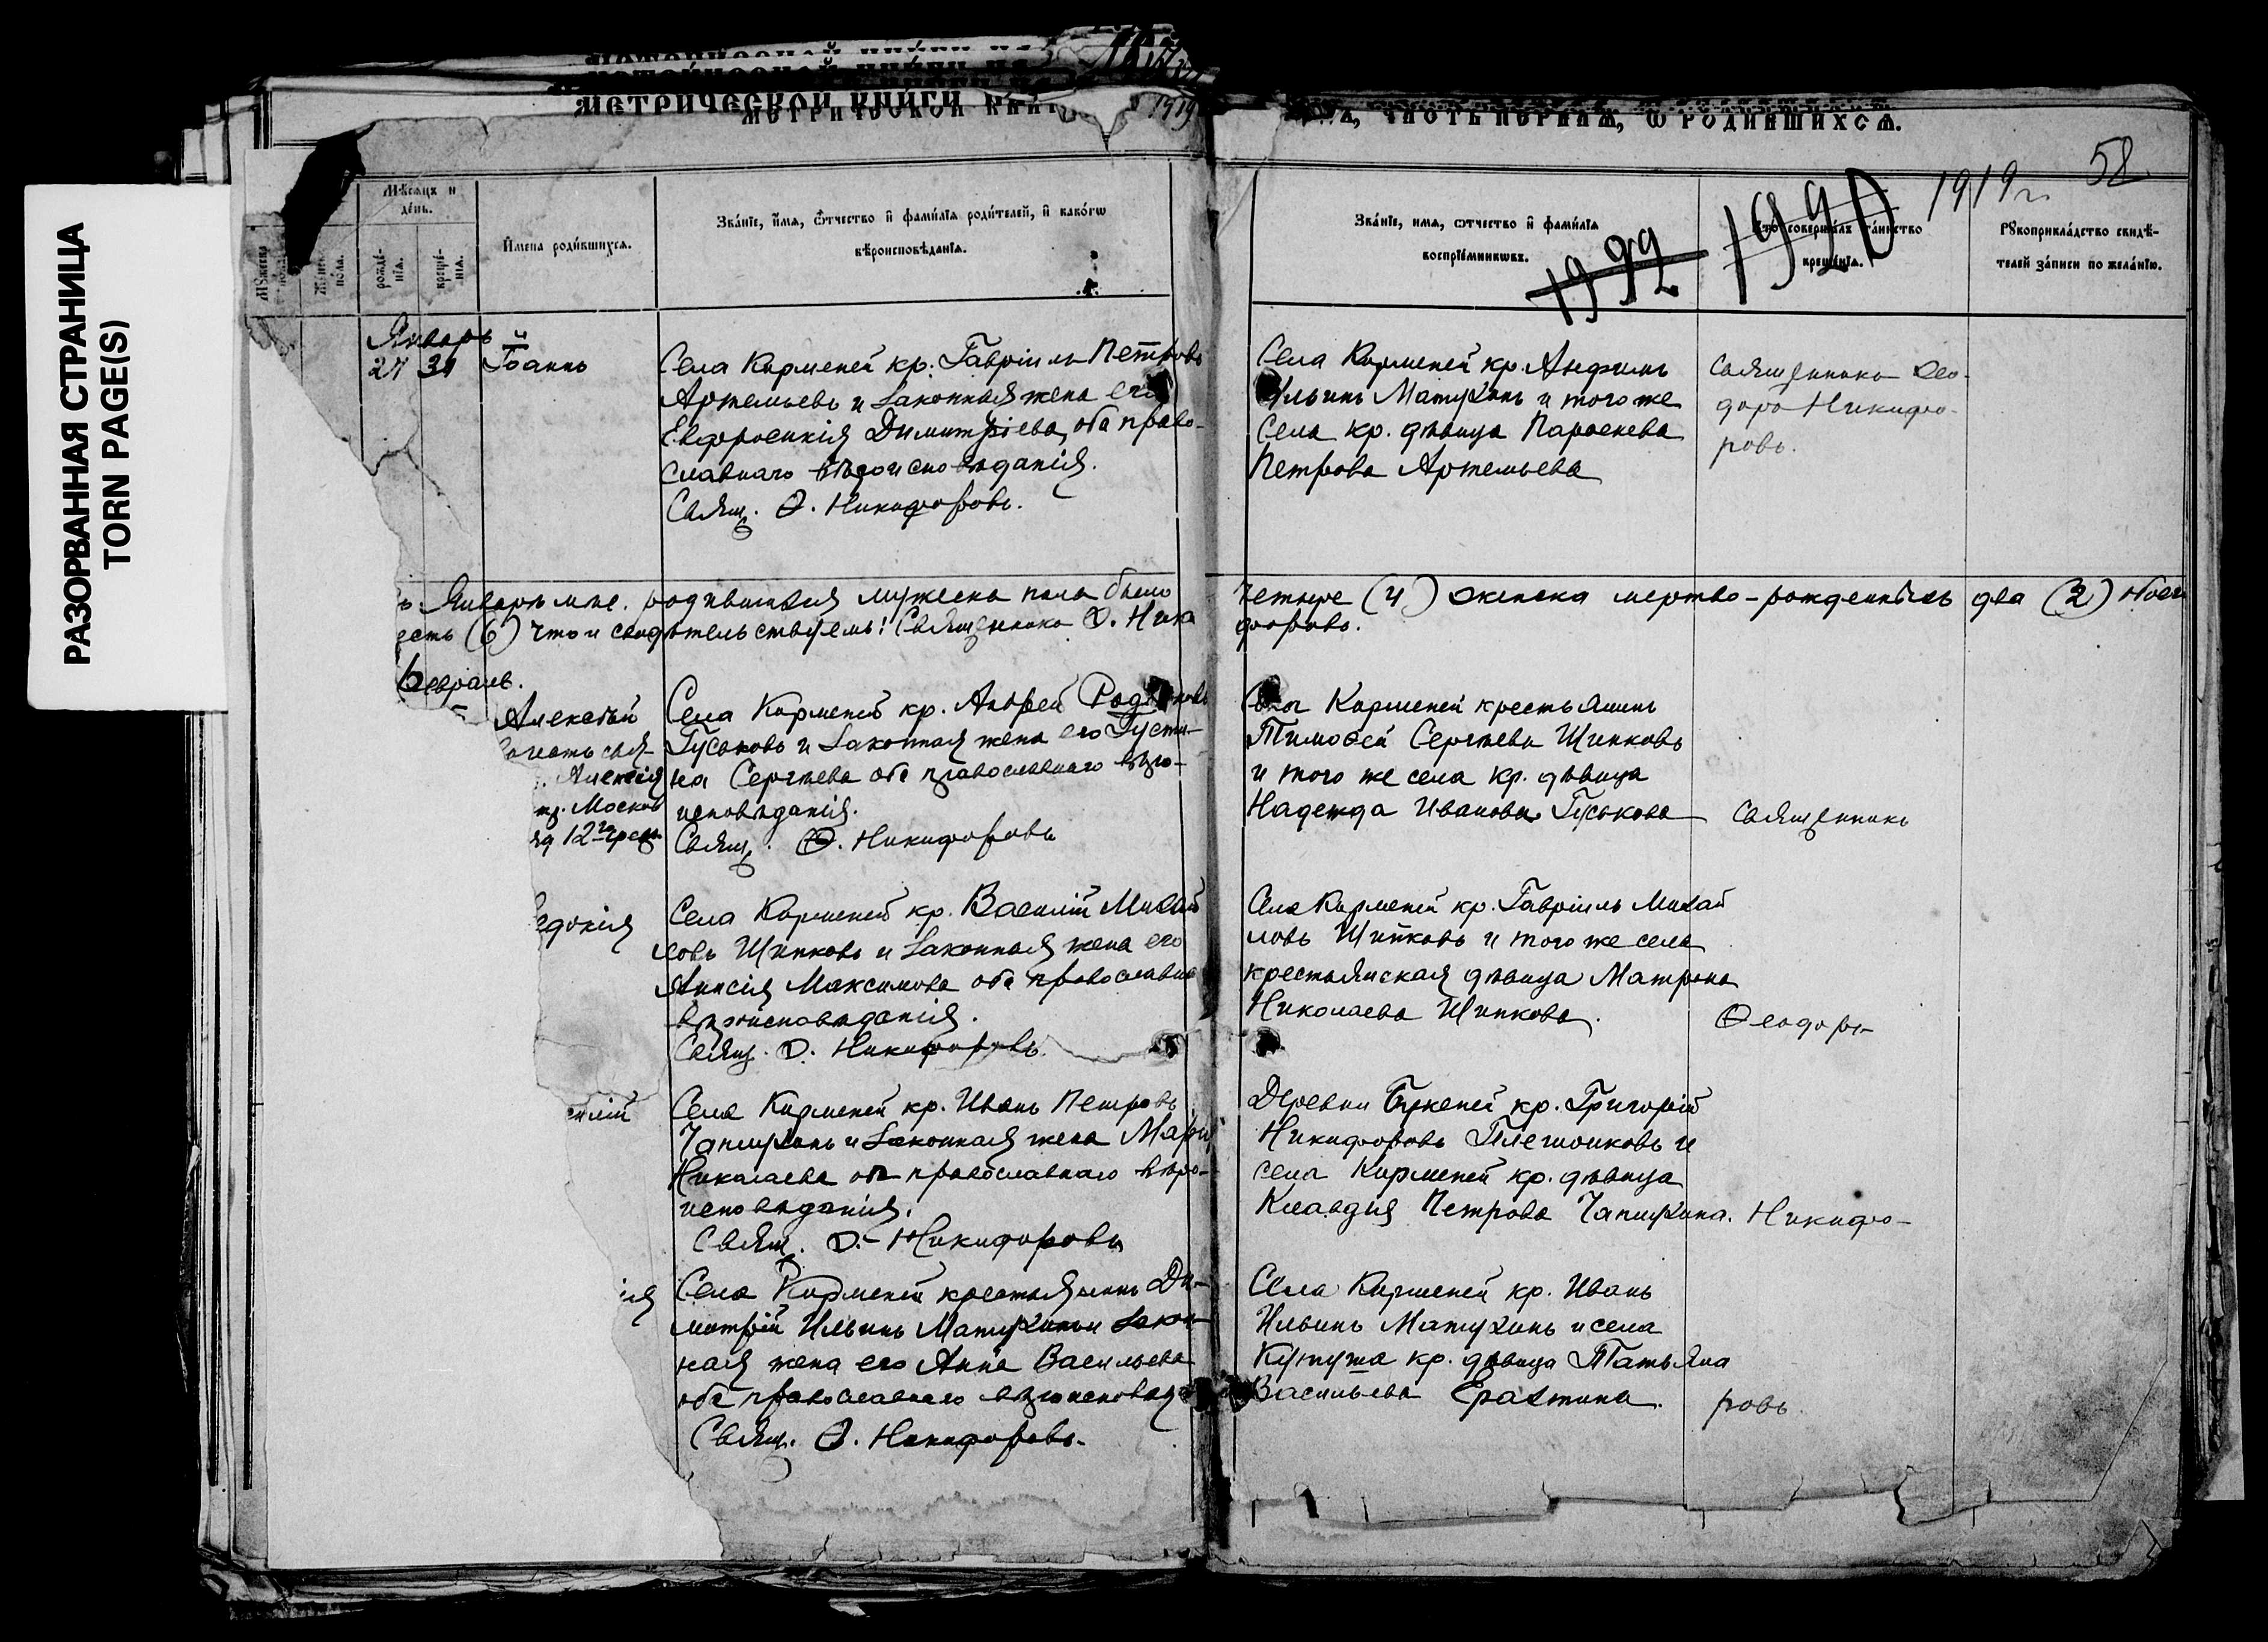 РАЗОРВАННАЯ СТРАНИЦА
TORN PAGE(S)
МЕТРИЧЕСКОЙ КНИГИ
1919
ЧАСТЬ ПЕРВАЯ, Ѡ РОДИВШИХСЯ.
1919 г.
58
1992
1990
Мѣсяцъ и день.
рожде-нія.
креще-нія.
Имена родившихся.
Званіе, имя, ѻтчество и фамилія родителей, и какогѡ
вѣроисповѣданія.
Званіе, имя, ѻтчество и фамилія
воспріемникѡвъ.
Кто совершалъ таинство
крещенія.
Рꙋкоприкладство свидѣ-
телей записи по желанію.
Январь
27 31 Іоаннъ
Села Кирменей кр. Гавріилъ Петровъ
Артемьевъ и законная жена его
Евфросинія Димитріева, оба право-
славнаго вѣроисповѣданія.
Свящ. Ѳ. Никифоровъ.
Села Кирменей кр. Анфимъ
Ильинъ Матухинъ и того же
Села кр. дѣвица Параскева
Петрова Артемьева
Священникъ Ѳео-
доръ Никифо-
ровъ.
Январѣ мѣс. родившихся мужеска пола было четыре (4) женска мертво-рожденныхъ два (2) обоего
(6) что и свидѣтельствуемъ: Священникъ Ѳ. Ники
форовъ.
Февраль.
Алексѣй
Алексія
Москов
12 февр.
Села Кирменей кр. Андрей Родіоновъ
Гуськовъ и законная жена его Густи-
на Сергѣева оба православнаго вѣро-
исповѣданія.
Свящ. Ѳ. Никифоровъ
Села Кирменей крестьянинъ
Тимоѳей Сергѣевъ Щипковъ
и того же села кр. дѣвица
Надежда Иванова Гуськова
Священникъ
едокія
Села Кирменей кр. Василій Михай
ловъ Щипковъ и законная жена его
Анисія Максимова оба православнаго
вѣроисповѣданія.
Свящ. Ѳ. Никифоровъ.
Села Кирменей кр. Гавріилъ Михай
ловъ Щипковъ и того же села
крестьянская дѣвица Матрона
Николаева Щипкова.
Ѳеодоръ
силій
Села Кирменей кр. Иванъ Петровъ
Чапухинъ и законная жена Марія
Николаева оба православнаго вѣро-
исповѣданія.
Свящ. Ѳ. Никифоровъ
Деревни Букеней кр. Григорій
Никифоровъ Плешонковъ и
села Кирменей кр. дѣвица
Клавдія Петрова Чапухина.
Никифо-
ія
Села Кирменей крестьянинъ Ди-
митрій Ильинъ Матухинъ и закон
ная жена его Анна Васильева
оба православнаго вѣроисповѣд
Свящ. Ѳ. Никифоровъ.
Села Кирменей кр. Иванъ
Ильинъ Матухинъ и села
Кутуша кр. дѣвица Татьяна
Васильева Ерахтина.
ровъ.